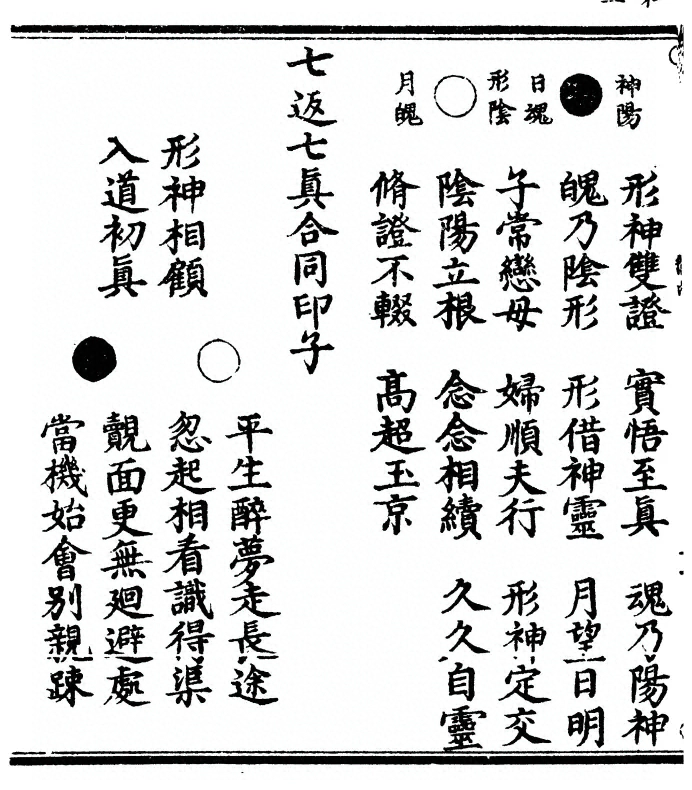 神陽
日魂
形陰
月魄
形神雙證 實悟至眞 魂乃陽神
魄乃陰形 形借神靈 月望日明
子常戀母 婦順夫行 形神定交
陰陽立根 念念相續 久久自靈
脩證不輟 高超玉京
七返七眞合同印子
形神相顧
入道初眞
平生醉夢走長途
忽起相看識得渠
覿面更無廻避處
當機始會別親踈